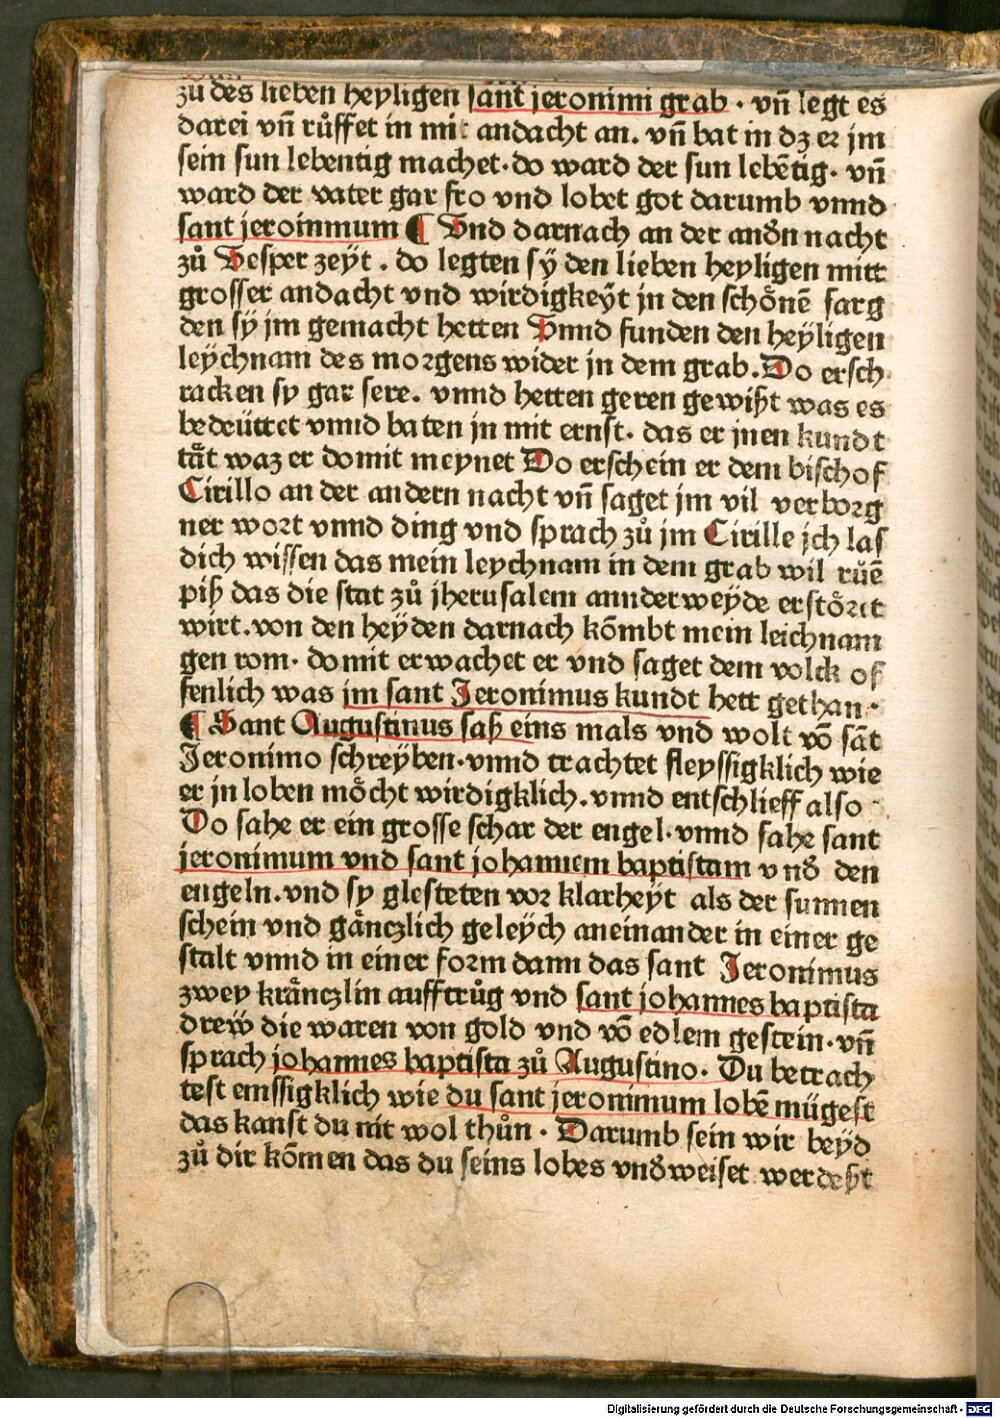 zů des lieben heyligen sant jeronimi grab · vñ legt es
darei vñ růffet in mit andacht an. vñ bat in dz er jm
sein sun lebentig machet· do ward der sun lebẽtig· vñ
ward der vater gar fro vnd lobet got darumb vnnd
sant jeroinmum ¶ Vnd darnach an der andn̄ nacht
zů Vesper zeyt . do legten sÿ den lieben heyligen mitt
grosser andacht vnd wirdigkeÿt jn den schönẽ sarg
den sÿ jm gemacht hetten Vnnd funden den heÿligen
leÿchnam des morgens wider jn dem grab. Do ersch
racken sy gar sere. vnnd hetten geren gewißt was es
bedeüttet vnnd baten jn mit ernst. das er jnen kundt
tät waz er domit meynet Do erschein er dem bischof
Cirillo an der andern nacht vñ saget jm vil verborg
ner wort vnnd ding vnd sprach zů jm Cirille jch las
dich wissen das mein leychnam in dem grab wil růẽ
piß das die stat zů jherusalem annderweyde erstört
wirt. von den heÿden darnach kõmbt mein leichnam
gen rom· domit erwachet er vnd saget dem volck of
fenlich was jm sant Jeronimus kundt hett gethan·
¶ Sant Augustinus saß eins mals vnd wolt võ sãt
Jeronimo schreÿben· vnnd trachtet fleyssigklich wie
er jn loben möcht wirdigklich. vnnd entschlieff also
Do sahe er ein grosse schar der engel· vnnd sahe sant
jeronimum vnd sant johannem baptistam vnd̉ den
engeln. vnd sy glesteten vor klarheÿt als der sunnen
schein vnd gänczlich geleÿch aneinander in einer ge
stalt vnnd in einer form dann das sant Jeronimus
zwey kränczlin aufftrůg vnd sant johannes baptista
dreẅ die waren von gold vnd võ edlem gestein· vñ
sprach johannes baptista zů Augustino. Du betrach
test emssigklich wie du sant jeronimum lobẽ mügest
das kanst du nit wol thůn · Darumb sein wir beÿd
zů dir kõmen das du seins lobes vnd̉weiset werdeßt
Digitalisierung gefördert durch die Deutsche Forschungsgemeinschaft - DFG